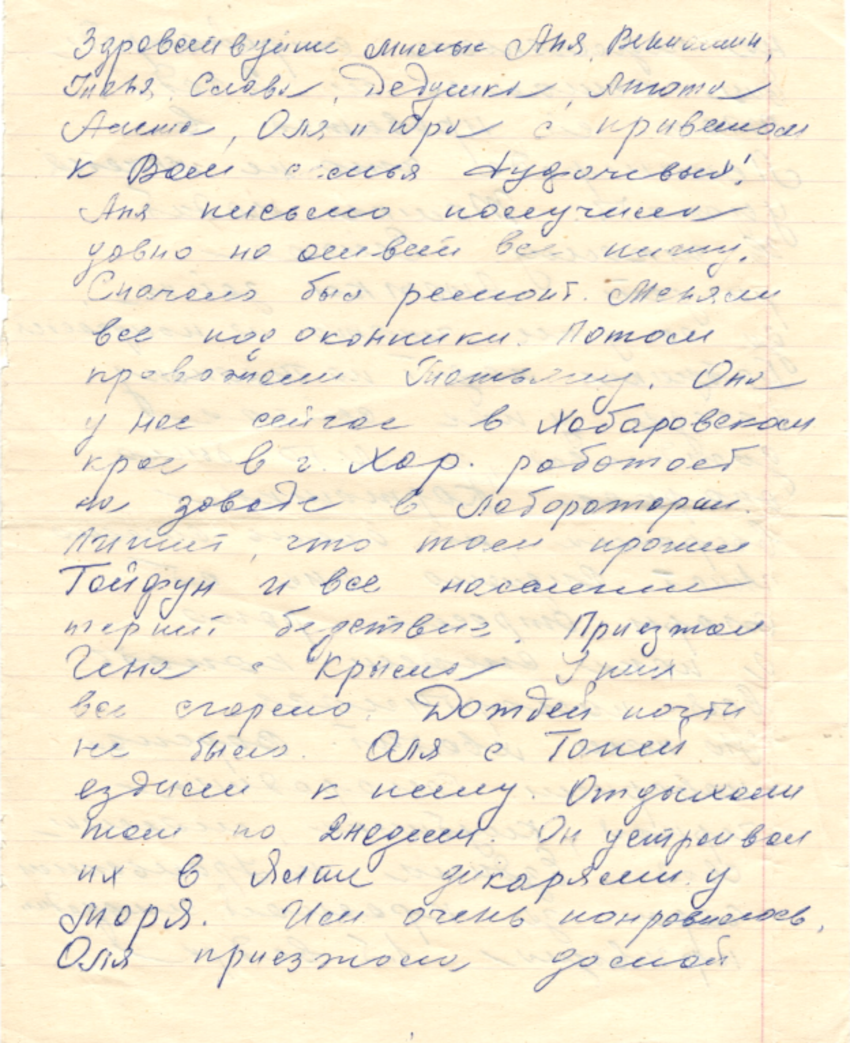 Здравствуйте милые Аня, Вениамин,
Таня, Слава, Дедушка, Анюта
Алета, Оля и Юра с приветом
к Вам семья
Аня письмо получила
давно но ответ все пишу.
Сначало был ремонт. Меняли
все подоконники. Потом
провожали Татьяну. Она
у нас сейчас в Хабаровском
крае в г. Хор. работает
на заводе в лаборатории.
Пишит, что там прошел
Тайфун и все население
терпит бедствие. Приезжал
Гена с Крыма У них
все сгорело. Дождей почти
не было. Оля с Тоней
ездили к нему. Отдыхали
там по 2 недели. Он устраивал
их в Ялти дикарями у
моря. Им очень понравилось,
Оля приезжала домой